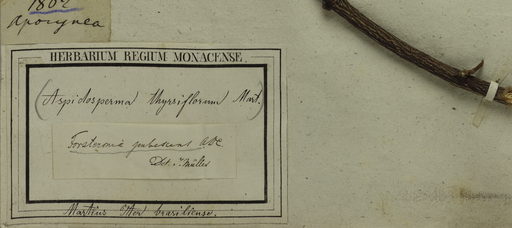 1802
Apocynea
HERBARIUM REGIUM MONACENSE.
(Aspidosperma thyrsiflorum Mart.)
Forsteronia pubescens A.DC.
Det. J. Müller
Martius Iter brasiliense.